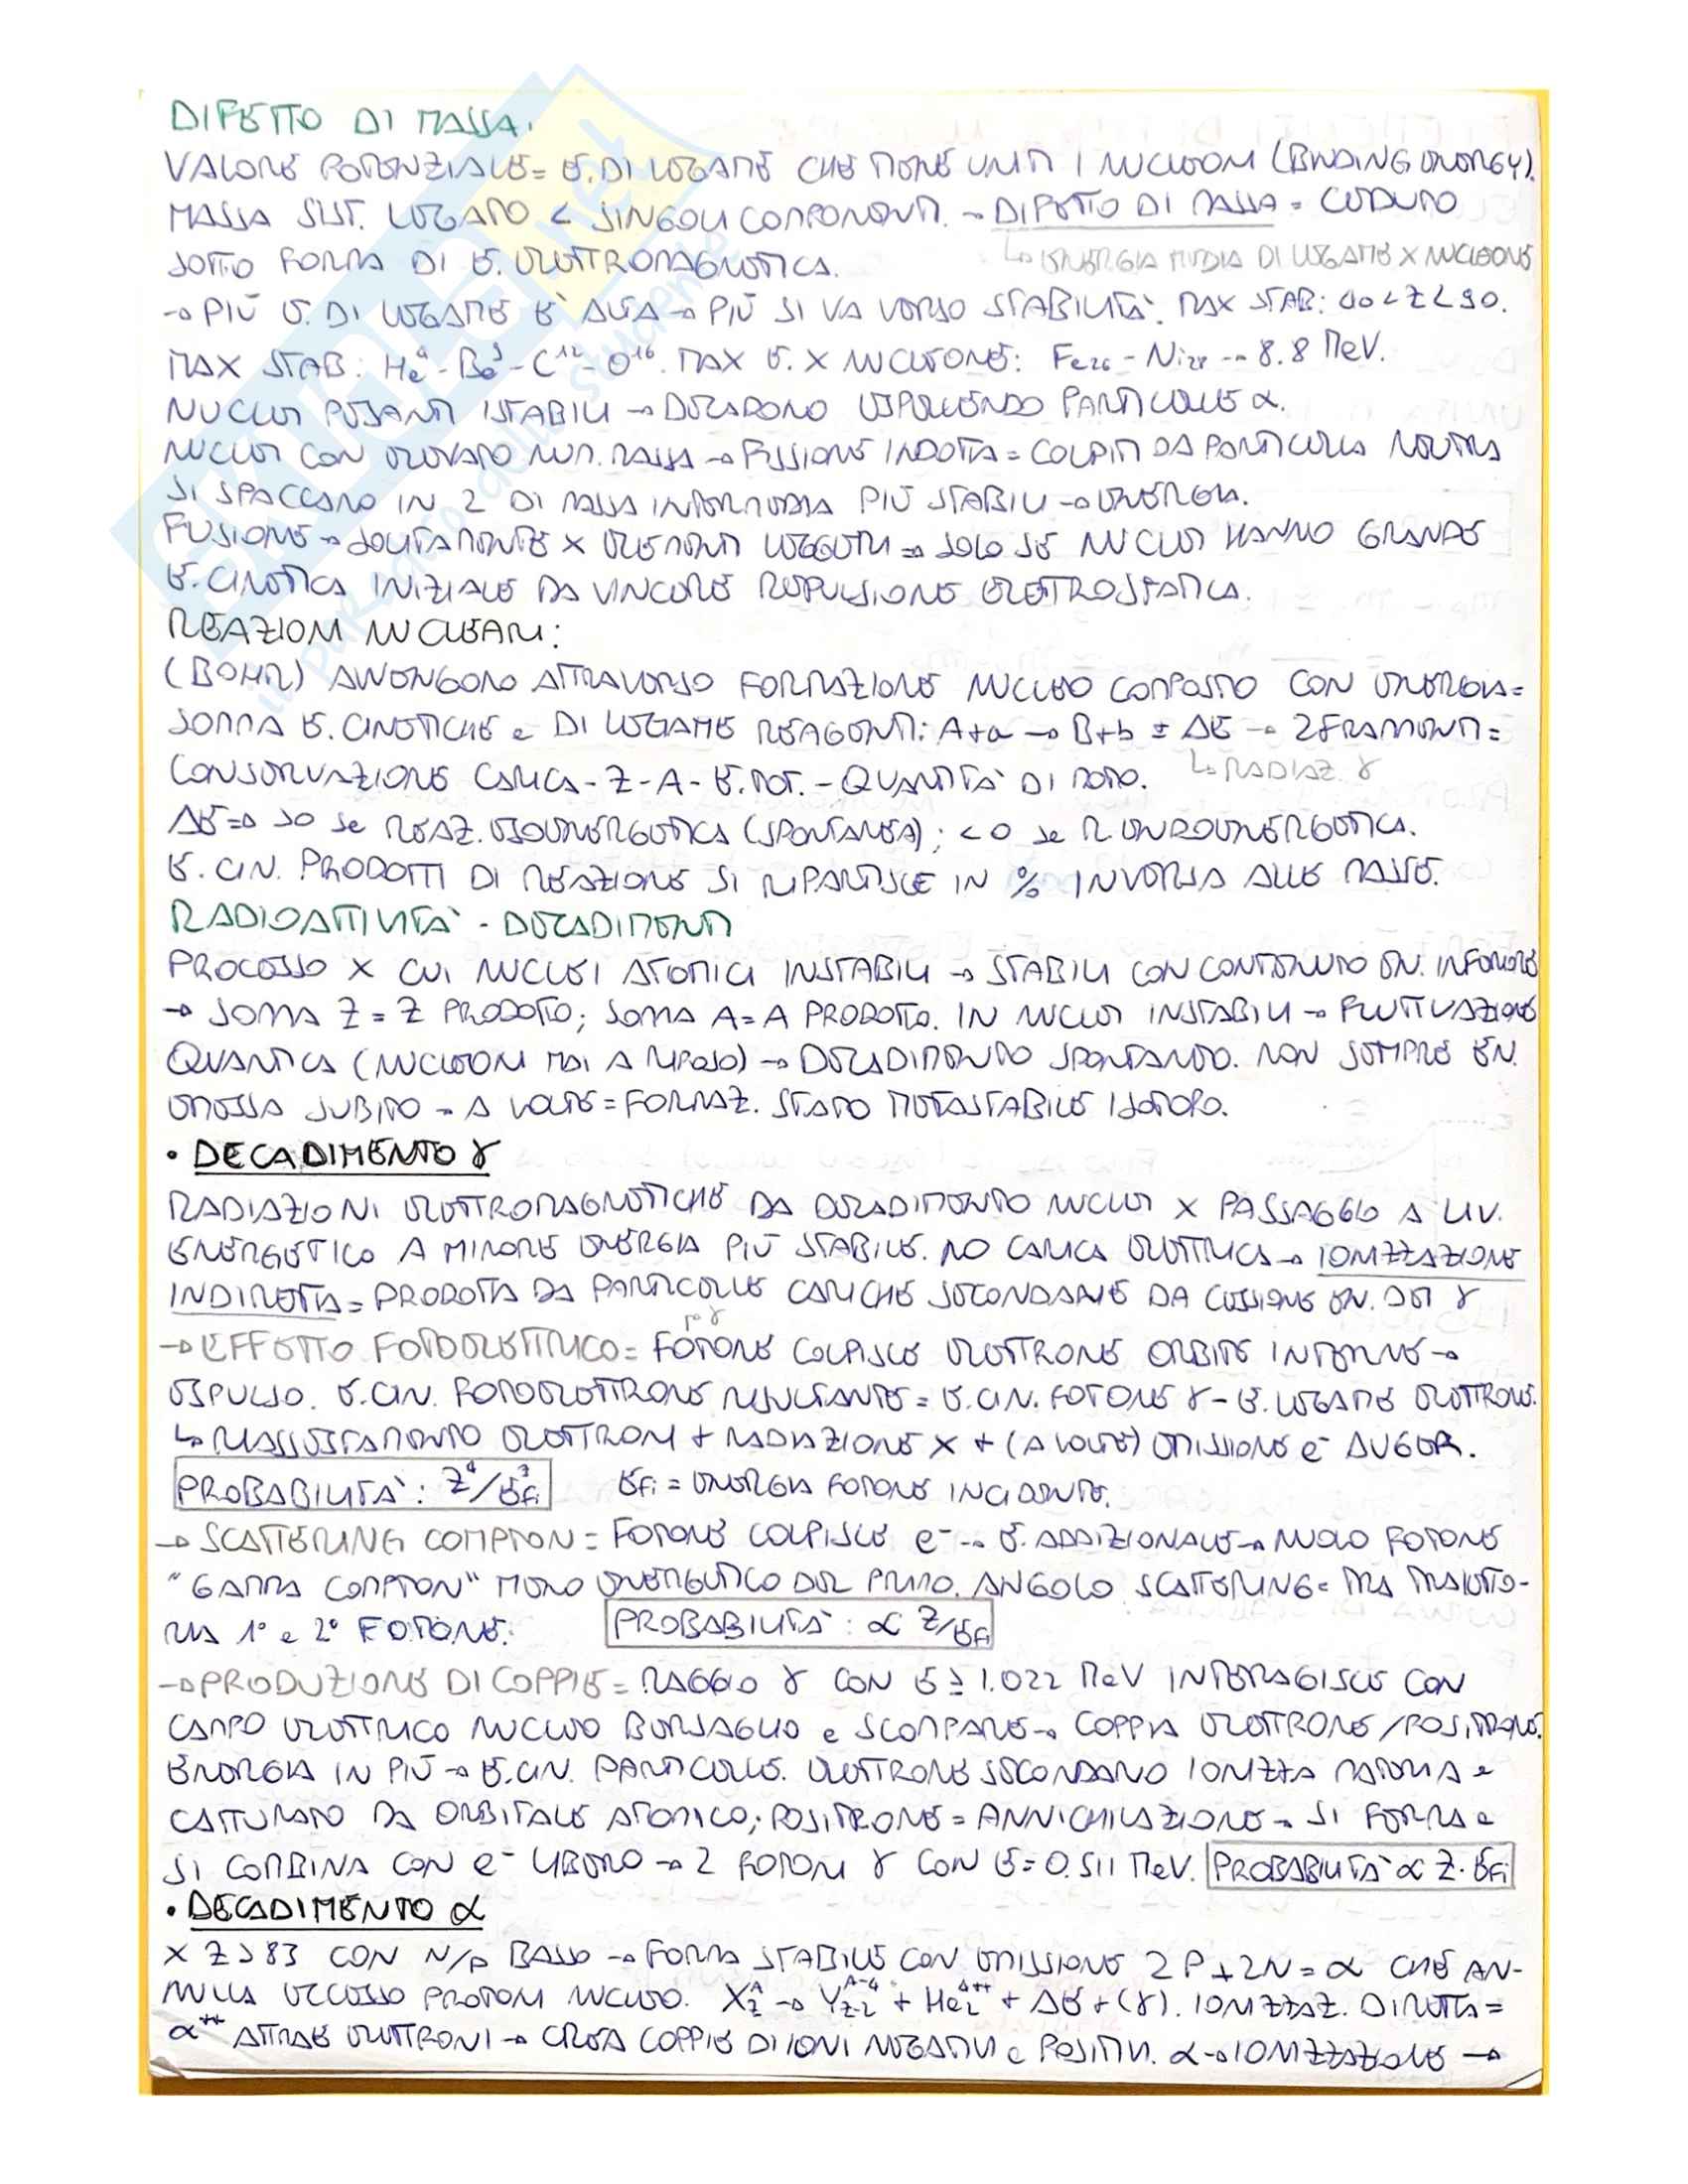 DIFETTO DI MASSA.
VALORE POTENZIALE = E. DI LEGAME CHE TIENE UNITI I NUCLEONI (BINDING ENERGY).
MASSA SIST. LEGATO < SINGOLI COMPONENTI. → DIFETTO DI MASSA = CEDUTO
SOTTO FORMA DI E. ELETTROMAGNETICA. ↳ ENERGIA MEDIA DI LEGAME X NUCLEONE
→ PIÙ E. DI LEGAME È ALTA → PIÙ SI VA VERSO STABILITÀ. MAX STAB: 40 < Z < 90.
MAX STAB: He⁴ - Be⁹ - C¹² - O¹⁶. MAX E. X NUCLEONE: Fe₂₆ - Ni₂₈ → 8.8 MeV.
NUCLEI PESANTI ISTABILI → DECADONO ESPELLENDO PARTICELLE α.
NUCLEI CON ELEVATO NUM. MASSA → FISSIONE INDOTTA = COLPITI DA PARTICELLA NEUTRA
SI SPACCANO IN 2 DI MASSA INTERMEDIA PIÙ STABILI → ENERGIA.
FUSIONE → SOLITAMENTE X ELEMENTI LEGGERI ⇒ SOLO SE NUCLEI HANNO GRANDE
E. CINETICA INIZIALE DA VINCERE REPULSIONE ELETTROSTATICA.
REAZIONI NUCLEARI:
(BOHR) AVVENGONO ATTRAVERSO FORMAZIONE NUCLEO COMPOSTO CON ENERGIA =
SOMMA E. CINETICHE e DI LEGAME REAGENTI: A+a → B+b ± ΔE → 2 FRAMMENTI =
CONSERVAZIONE CARICA - Z - A - E. TOT. - QUANTITÀ DI MOTO. ↳ RADIAZ. γ
ΔE ⇒ >0 se REAZ. ESOENERGETICA (SPONTANEA); <0 se R. ENDOENERGETICA.
E. CIN. PRODOTTI DI REAZIONE SI RIPARTISCE IN % INVERSA ALLE MASSE.
RADIOATTIVITÀ - DECADIMENTI
PROCESSO X CUI NUCLEI ATOMICI INSTABILI → STABILI CON CONTENUTO EN. INFERIORE
→ SOMMA Z = Z PRODOTTO; SOMMA A = A PRODOTTO. IN NUCLEI INSTABILI → FLUTTUAZIONE
QUANTICA (NUCLEONI MAI A RIPOSO) → DECADIMENTO SPONTANEO. NON SEMPRE EN.
EMESSA SUBITO → A VOLTE = FORMAZ. STATO METASTABILE ISOTOPO.
• DECADIMENTO γ
RADIAZIONI ELETTROMAGNETICHE DA DECADIMENTO NUCLEI X PASSAGGIO A LIV.
ENERGETICO A MINORE ENERGIA PIÙ STABILE. NO CARICA ELETTRICA → IONIZZAZIONE
INDIRETTA = PRODOTTA DA PARTICELLE CARICHE SECONDARIE DA CESSIONE EN. DEI γ
→ EFFETTO FOTOELETTRICO = FOTONE COLPISCE ELETTRONE ORBITE INTERNE →
ESPULSO. E. CIN. FOTOELETTRONE RISULTANTE = E. CIN. FOTONE γ - E. LEGAME ELETTRONE.
↳ RIASSESTAMENTO ELETTRONI + RADIAZIONE X + (A VOLTE) EMISSIONE e⁻ AUGER.
PROBABILITÀ: Z⁴/E³fi Efi = ENERGIA FOTONE INCIDENTE.
→ SCATTERING COMPTON = FOTONE COLPISCE e⁻ → E. ADDIZIONALE → NUOVO FOTONE
"GAMMA COMPTON" MENO ENERGETICO DEL PRIMO. ANGOLO SCATTERING = TRA TRAIETTO-
RIA 1° e 2° FOTONE. PROBABILITÀ: ∝ Z/Efi
→ PRODUZIONE DI COPPIE = RAGGIO γ CON E ≥ 1.022 MeV INTERAGISCE CON
CAMPO ELETTRICO NUCLEO BERSAGLIO e SCOMPARE → COPPIA ELETTRONE/POSITRONE.
ENERGIA IN PIÙ → E. CIN. PARTICELLE. ELETTRONE SECONDARIO IONIZZA MATERIA e
CATTURATO DA ORBITALE ATOMICO; POSITRONE = ANNICHILAZIONE → SI FORMA e
SI COMBINA CON e⁻ LIBERO → 2 FOTONI γ CON E = 0.511 MeV. PROBABILITÀ ∝ Z·Efi
• DECADIMENTO α
X Z > 83 CON N/p BASSO → FORMA STABILE CON EMISSIONE 2P + 2N = α CHE AN-
NULLA ECCESSO PROTONI NUCLEO. X^A_Z → Y^A-4_Z-2 + He^4++_2 + ΔE + (γ). IONIZZAZ. DIRETTA =
α⁺⁺ ATTRAE ELETTRONI → CREA COPPIE DI IONI NEGATIVI e POSITIVI. α → IONIZZAZIONE →